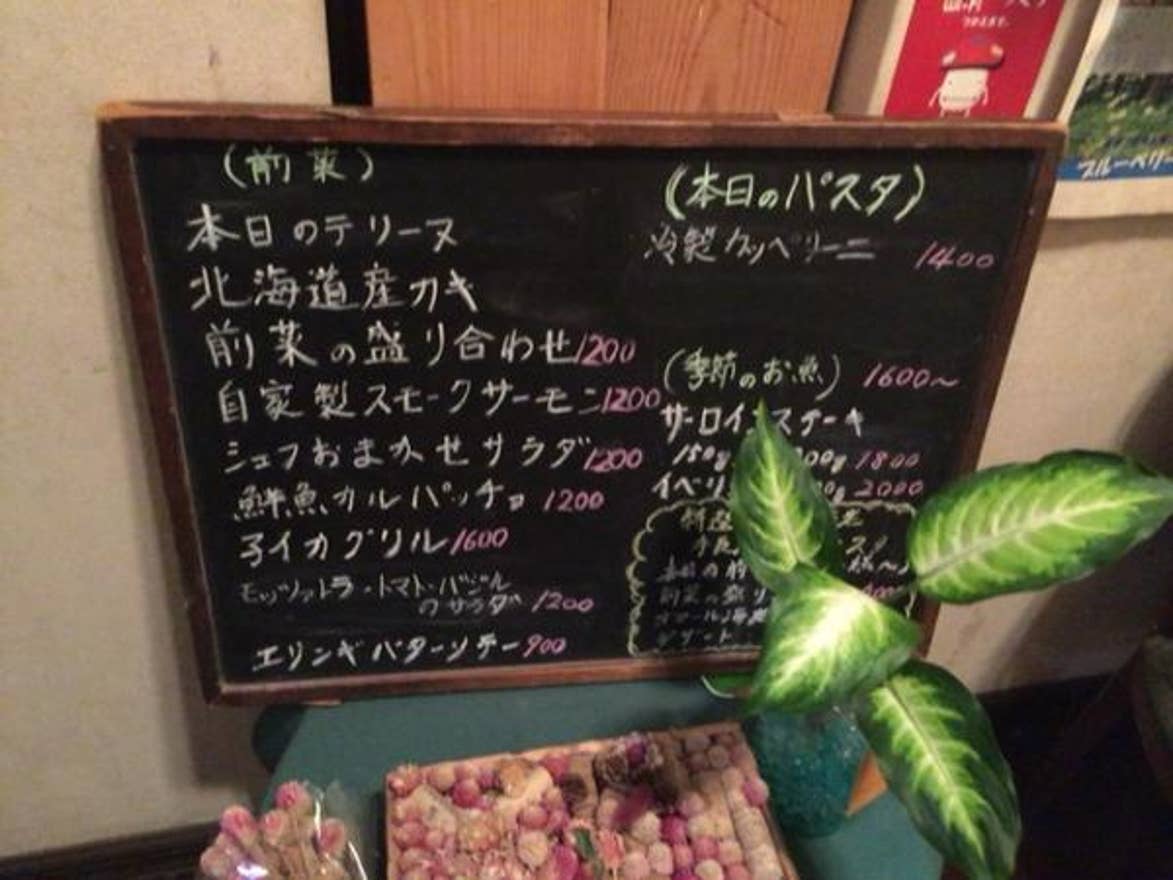 (前菜)
本日のテリーヌ
北海道産カキ
前菜の盛り合わせ1200
自家製スモークサーモン1200
シェフおまかせサラダ1200
鮮魚カルパッチョ 1200
子イカグリル1600
モッツァレラ・トマト・バジル
のサラダ 1200
エリンギバターソテー900
(本日のパスタ)
冷製カッペリーニ 1400
(季節のお魚) 1600～
サーロインステーキ
150g 1800
イベリ 2000
本日の
前菜の盛り
デザート
つかえます。
ブルーベリー